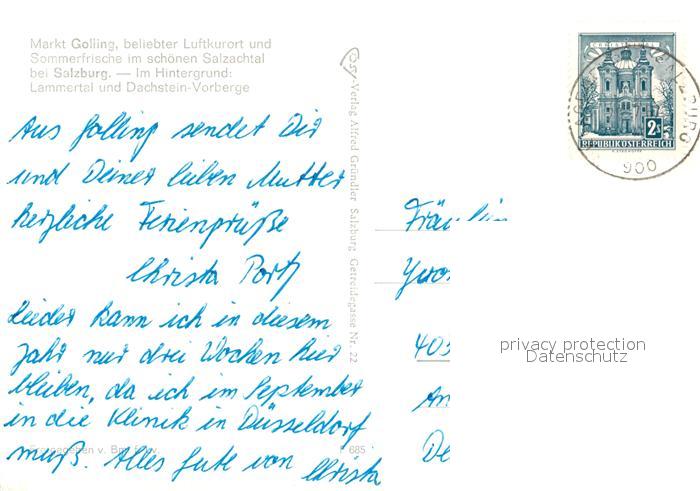 Markt Golling, beliebter Luftkurort und
Sommerfrische im schönen Salzachtal
bei Salzburg. — Im Hintergrund:
Lammertal und Dachstein-Vorberge
Aus Golling sendet Dir
und Deiner lieben Mutter
herzliche Feriengrüße
Christa Portz
Leider kann ich in diesem
Jahr nur drei Wochen hier
bleiben, da ich im September
in die Klinik in Düsseldorf
muß. Alles Gute von Christa
Verlag Alfred Gründler Salzburg Getreidegasse Nr. 22
685
CHRISTKINDL
2S
REPUBLIK ÖSTERREICH
900
Fräulin
Yvon
403
An
De
privacy protection
Datenschutz